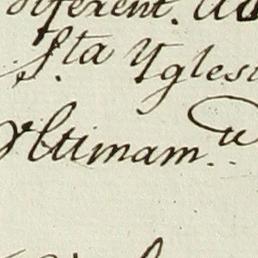 diferent.
S.ta Ygles
Vltimam.te